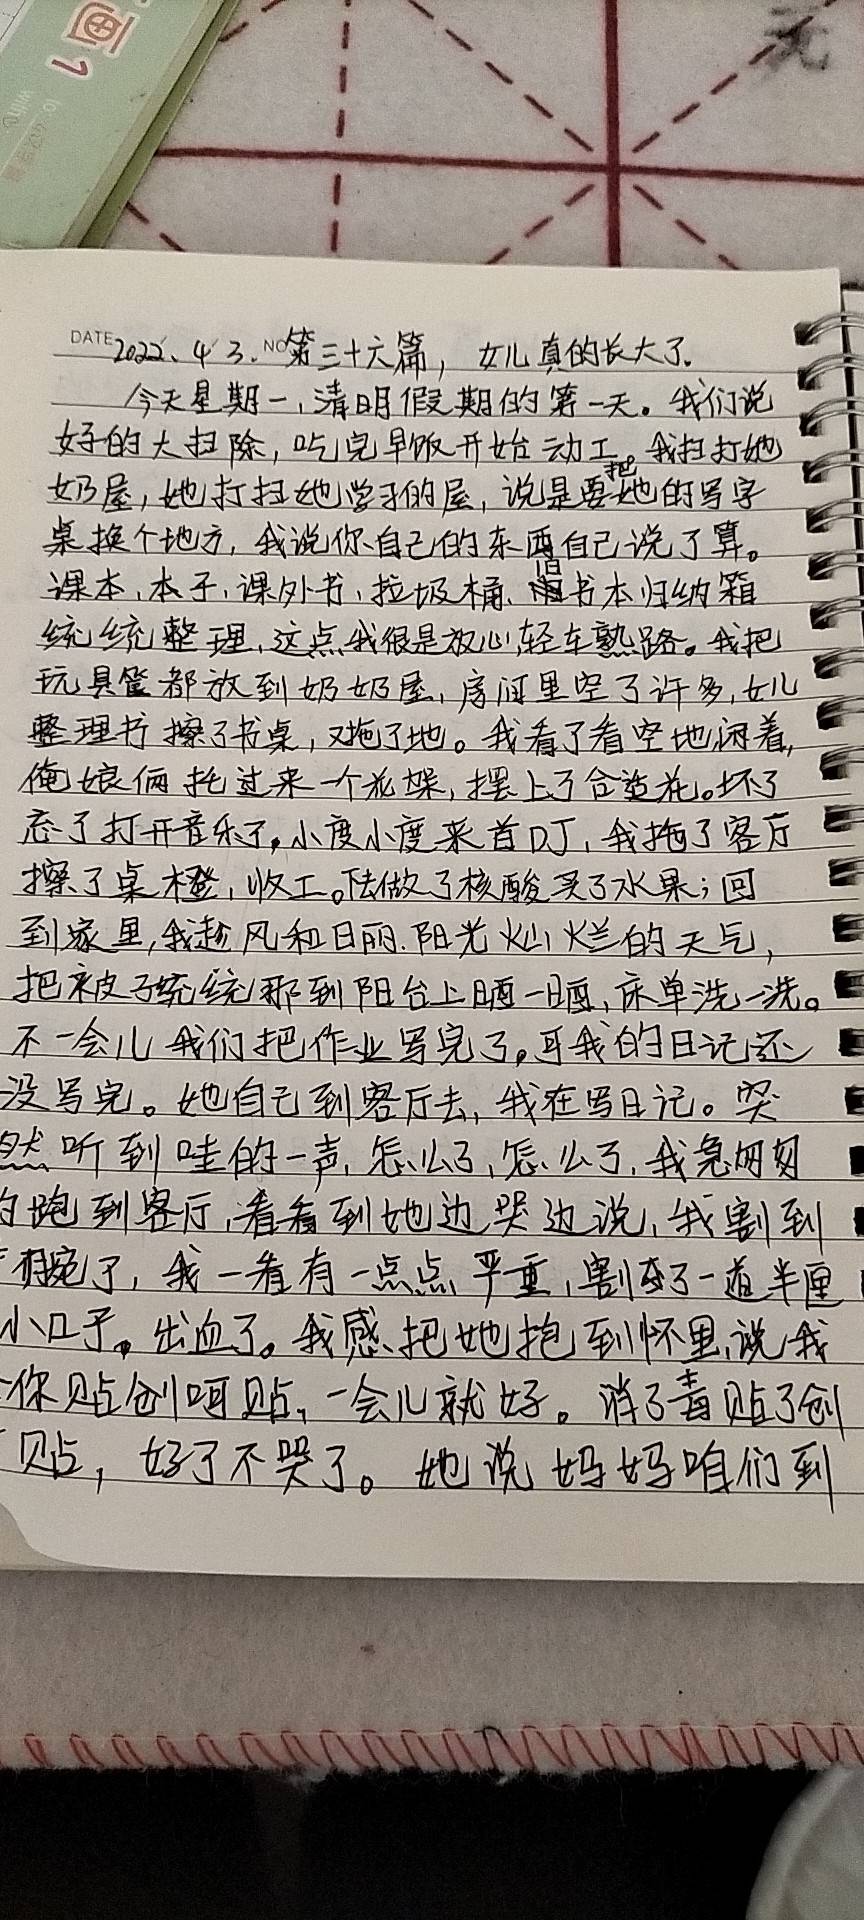 画1
元
DATE 2022、4 3. NO 第三十六篇，女儿真的长大了.
今天星期一,清明假期的第一天。我们说
好的大扫除，吃完早饭开始动工。我扫打她
奶屋，她打扫她学习的屋，说是要把她的写字
桌换个地方，我说你自己的东西自己说了算。
课本、本子、课外书、垃圾桶、旧书本归纳箱
统统整理,这点我很是放心,轻车熟路。我把
玩具筐都放到奶奶屋,房间里空了许多,女儿
整理书擦了书桌，又拖了地。我看了看空地闲着,
俺娘俩托过来一个花架,摆上了合适花。坏了
忘了打开音乐了,小度小度来首DJ,我拖了客厅
擦了桌橙,收工。下去做了核酸买了水果；回
到家里,我趁风和日丽.阳光灿烂的天气,
把被子统统那到阳台上晒一晒,床单洗一洗。
不一会儿我们把作业写完了。可我的日记还
没写完。她自己到客厅去,我在写日记。突
然听到哇的一声,怎么了,怎么了,我急匆匆
的跑到客厅,看看到她边哭边说,我割到
手腕了,我一看有一点点严重,割了一道半厘
小口子。出血了。我感、把她抱到怀里,说我
你贴创呵贴,一会儿就好。消了毒贴了创
贴，好了不哭了。她说妈妈咱们到